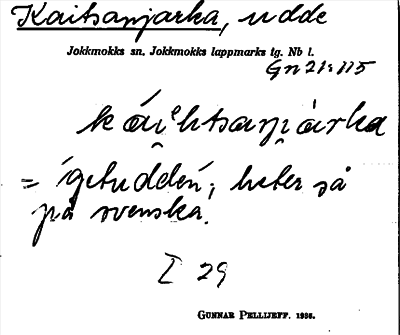 Kaitsanjarka, udde
Jokkmokks sn. Jokkmokks lappmarks tg. Nb l.
Gn 21:115
= 
heter så
på svenska.
I 29
GUNNAR PELLIJEFF. 1936.